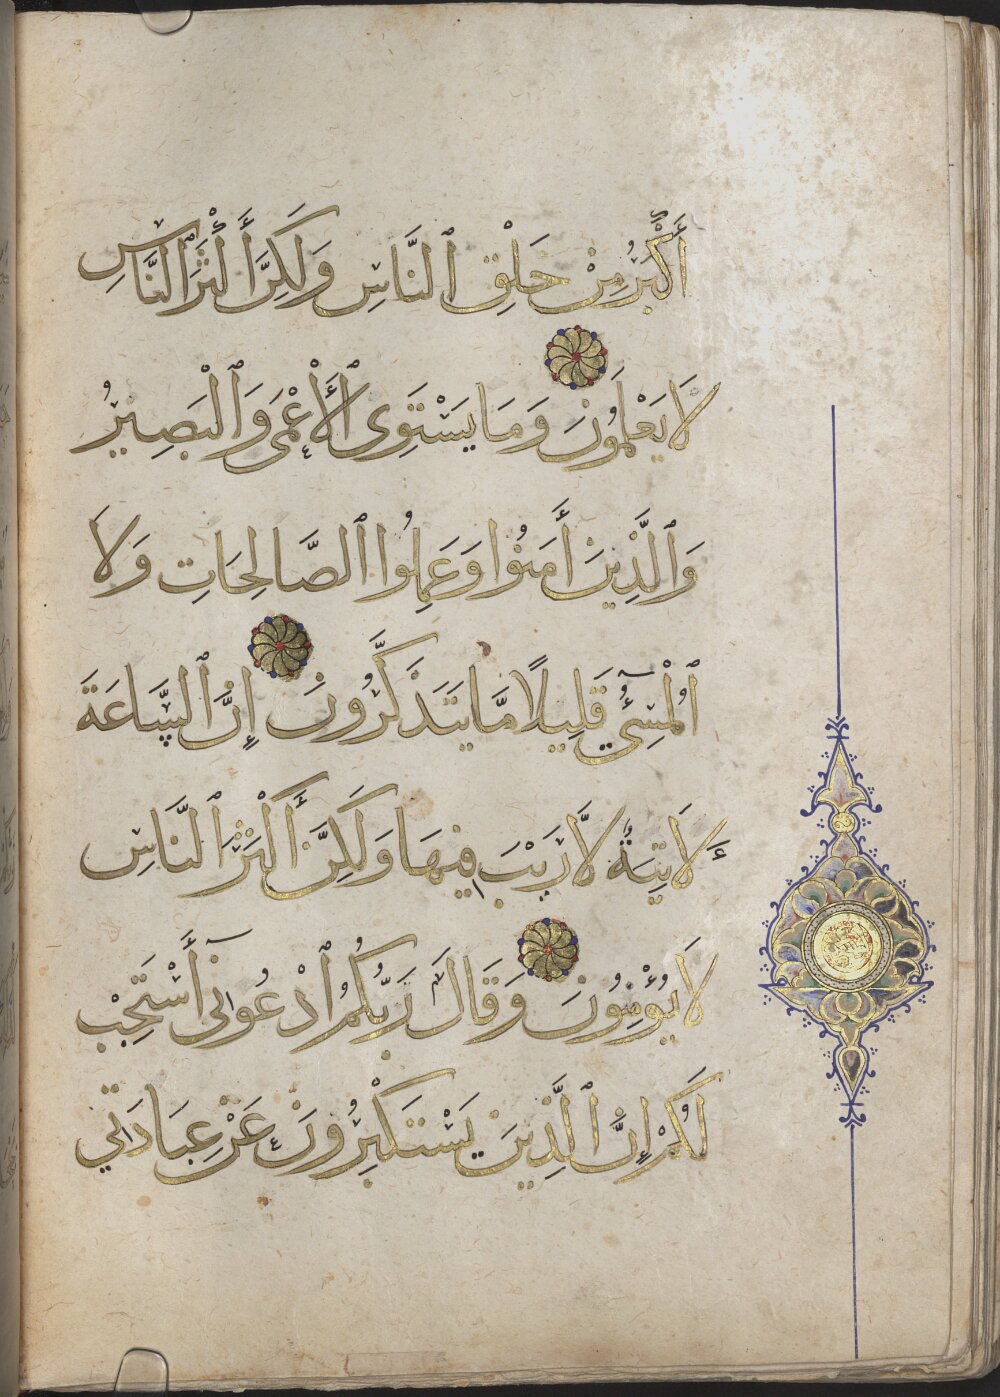 أَكْبَرُ مِنْ خَلْقِ ٱلنَّاسِ وَلَكِنَّ أَكْثَرَ ٱلنَّاسِ
لَا يَعْلَمُونَ وَمَا يَسْتَوِى ٱلْأَعْمَى وَٱلْبَصِيرُ
وَٱلَّذِينَ أَمَنُوا وَعَمِلُوا ٱلصَّالِحَاتِ وَلَا
ٱلْمُسِىٓءُ قَلِيلًا مَّا يَتَذَكَّرُونَ إِنَّ ٱلسَّاعَةَ
لَأَتِيَةٌ لَّا رَيْبَ فِيهَا وَلَكِنَّ أَكْثَرَ ٱلنَّاسِ
لَا يُؤْمِنُونَ وَقَالَ رَبُّكُمُ ٱدْعُونِىٓ أَسْتَجِبْ
لَكُمْ إِنَّ ٱلَّذِينَ يَسْتَكْبِرُونَ عَنْ عِبَادَتِي